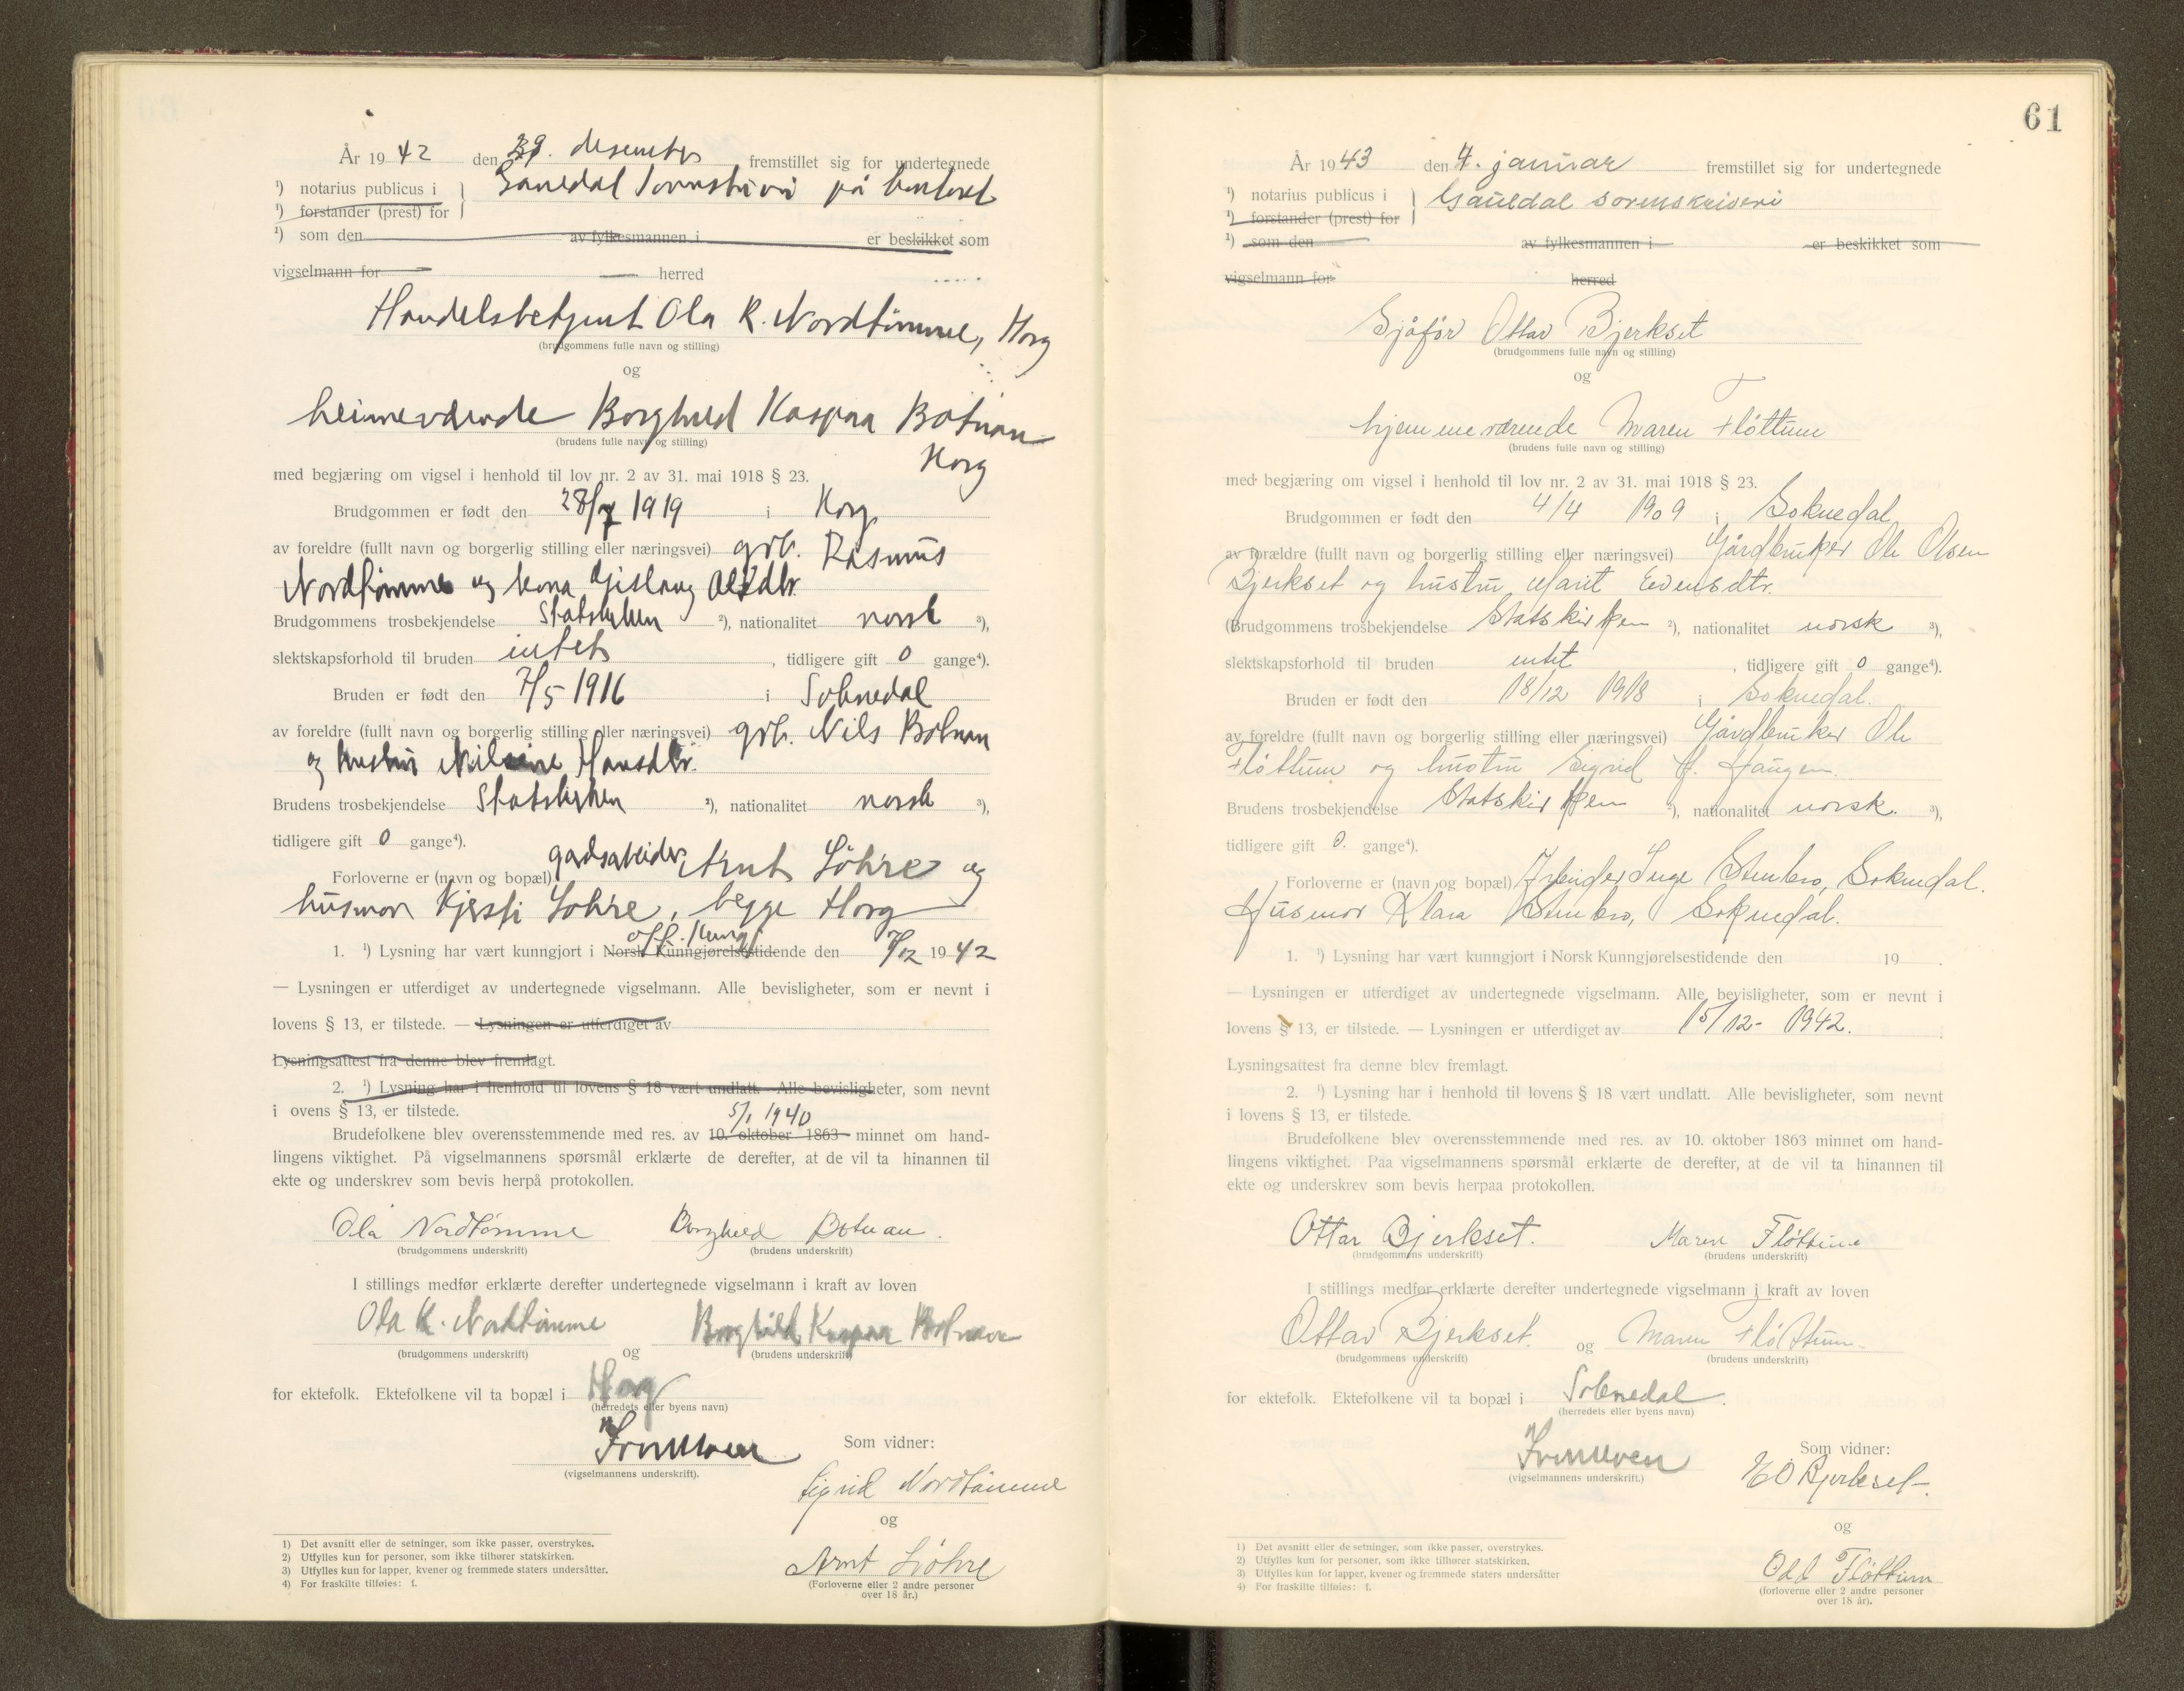 År 1942 den 29. desember fremstillet sig for undertegnede
¹) notarius publicus i } Gauldal sorenskriveri på kontoret
¹) forstander (prest) for
¹) som den av fylkesmannen i er beskikket som
vigselmann for herred
Handelsbetjent Ola K. Nordtømme, Horg
(brudgommens fulle navn og stilling)
og
heimeværende Borghild Kaspara Botnan
Horg
(brudens fulle navn og stilling)
med begjæring om vigsel i henhold til lov nr. 2 av 31. mai 1918 § 23.
Brudgommen er født den 28/7 1919 i Horg
av foreldre (fullt navn og borgerlig stilling eller næringsvei) grb. Rasmus
Nordtømme og kona Gislaug Olsdtr.
Brudgommens trosbekjendelse Statskirken ²), nationalitet norsk ³),
slektskapsforhold til bruden intet, tidligere gift 0 gange⁴).
Bruden er født den 7/5 1916 i Soknedal
av foreldre (fullt navn og borgerlig stilling eller næringsvei) grb. Nils Botnan
og hustru Hansdtr.
Brudens trosbekjendelse Statskirken ²), nationalitet norsk ³),
tidligere gift 0 gange⁴).
Forloverne er (navn og bopæl) gardsarbeider Arnt Løhre og
husmor Kjersti Løhre, begge Horg
1. ¹) Lysning har vært kunngjort i Norsk Kunngjørelsestidende off. kunngj. den 7/12 1942
— Lysningen er utferdiget av undertegnede vigselmann. Alle bevisligheter, som er nevnt i
lovens § 13, er tilstede. — Lysningen er utferdiget av
Lysningsattest fra denne blev fremlagt.
2. ¹) Lysning har i henhold til lovens § 18 vært undlatt. Alle bevisligheter, som nevnt
i ovens § 13, er tilstede.
5/1 1940
Brudefolkene blev overensstemmende med res. av 10. oktober 1863 minnet om hand-
lingens viktighet. På vigselmannens spørsmål erklærte de derefter, at de vil ta hinannen til
ekte og underskrev som bevis herpå protokollen.
Ola Nordtømme Borghild Botnan.
(brudgommens underskrift) (brudens underskrift)
I stillings medfør erklærte derefter undertegnede vigselmann i kraft av loven
Ola K. Nordtømme og Borghild Kaspara Botnan
(brudgommens underskrift) (brudens underskrift)
for ektefolk. Ektefolkene vil ta bopæl i Horg
(herredets eller byens navn)
(vigselmannens underskrift).
Som vidner:
Sigrid Nordtømme
og
Arnt Løhre
(Forloverne eller 2 andre personer
over 18 år.)
1) Det avsnitt eller de setninger, som ikke passer, overstrykes.
2) Utfylles kun for personer, som ikke tilhører statskirken.
3) Utfylles kun for lapper, kvener og fremmede staters undersåtter.
4) For fraskilte tilføies: f.
61
År 1943 den 7. januar fremstillet sig for undertegnede
¹) notarius publicus i } Gauldal sorenskriveri
¹) forstander (prest) for
¹) som den av fylkesmannen i er beskikket som
vigselmann for herred
Sjåfør Ottar Bjerkset
(brudgommens fulle navn og stilling)
og
hjemmeværende Maren Fløttum
(brudens fulle navn og stilling)
med begjæring om vigsel i henhold til lov nr. 2 av 31. mai 1918 § 23.
Brudgommen er født den 4/4 1909 i Soknedal
av forældre (fullt navn og borgerlig stilling eller næringsvei) Gårdbruker Ole Olsen
Bjerkset og hustru Marit Evensdtr.
(Brudgommens trosbekjendelse Statskirken ²), nationalitet norsk ³),
slektskapsforhold til bruden intet, tidligere gift 0 gange⁴).
Bruden er født den 18/12 1918 i Soknedal.
av foreldre (fullt navn og borgerlig stilling eller næringsvei) Gårdbruker Ole
Fløttum og hustru Sigrid H. Haugen.
Brudens trosbekjendelse Statskirken ²), nationalitet norsk. ³),
tidligere gift 0. gange⁴).
Forloverne er (navn og bopæl) Arbeider Inge Stenbro, Soknedal.
Husmor Klara Stenbro, Soknedal.
1. ¹) Lysning har vært kunngjort i Norsk Kunngjørelsestidende den 19 .
— Lysningen er utferdiget av undertegnede vigselmann. Alle bevisligheter, som er nevnt i
lovens § 13, er tilstede. — Lysningen er utferdiget av 15/12- 1942.
Lysningsattest fra denne blev fremlagt.
2. ¹) Lysning har i henhold til lovens § 18 vært undlatt. Alle bevisligheter, som nevnt
i lovens § 13, er tilstede.
Brudefolkene blev overensstemmende med res. av 10. oktober 1863 minnet om hand-
lingens viktighet. Paa vigselmannens spørsmål erklærte de derefter, at de vil ta hinannen til
ekte og underskrev som bevis herpaa protokollen.
Ottar Bjerkset. Maren Fløttum
(brudgommens underskrift) (brudens underskrift)
I stillings medfør erklærte derefter undertegnede vigselmann i kraft av loven
Ottar Bjerkset. og Maren Fløttum
(brudgommens underskrift) (brudens underskrift)
for ektefolk. Ektefolkene vil ta bopæl i Soknedal.
(herredets eller byens navn)
(vigselmannens underskrift.)
Som vidner:
E O Bjerkset.
og
Odd Fløttum
(forloverne eller 2 andre personer
over 18 år).
1) Det avsnitt eller de setninger, som ikke passer, overstrykes.
2) Utfylles kun for personer, som ikke tilhører statskirken.
3) Utfylles kun for lapper, kvener og fremmede staters undersåtter
4) For fraskilte tilføies: f.